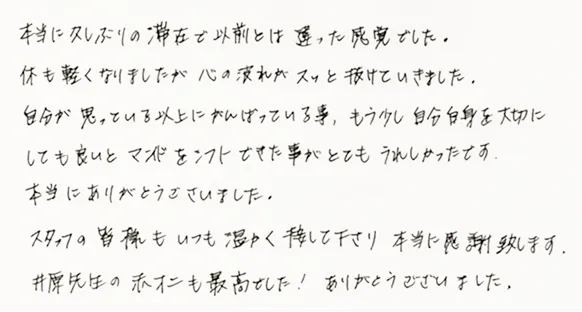 本当に久しぶりの滞在で以前とは違った感覚でした。
体も軽くなりましたが心の疲れがスッと抜けていきました。
自分が思っている以上にがんばっている事、もう少し自分自身を大切に
しても良いとマインドをシフトできた事がとてもうれしかったです。
本当にありがとうございました。
スタッフの皆様もいつも温かく接して下さり本当に感謝致します。
井厚先生のホオニも最高でした！ありがとうございました。